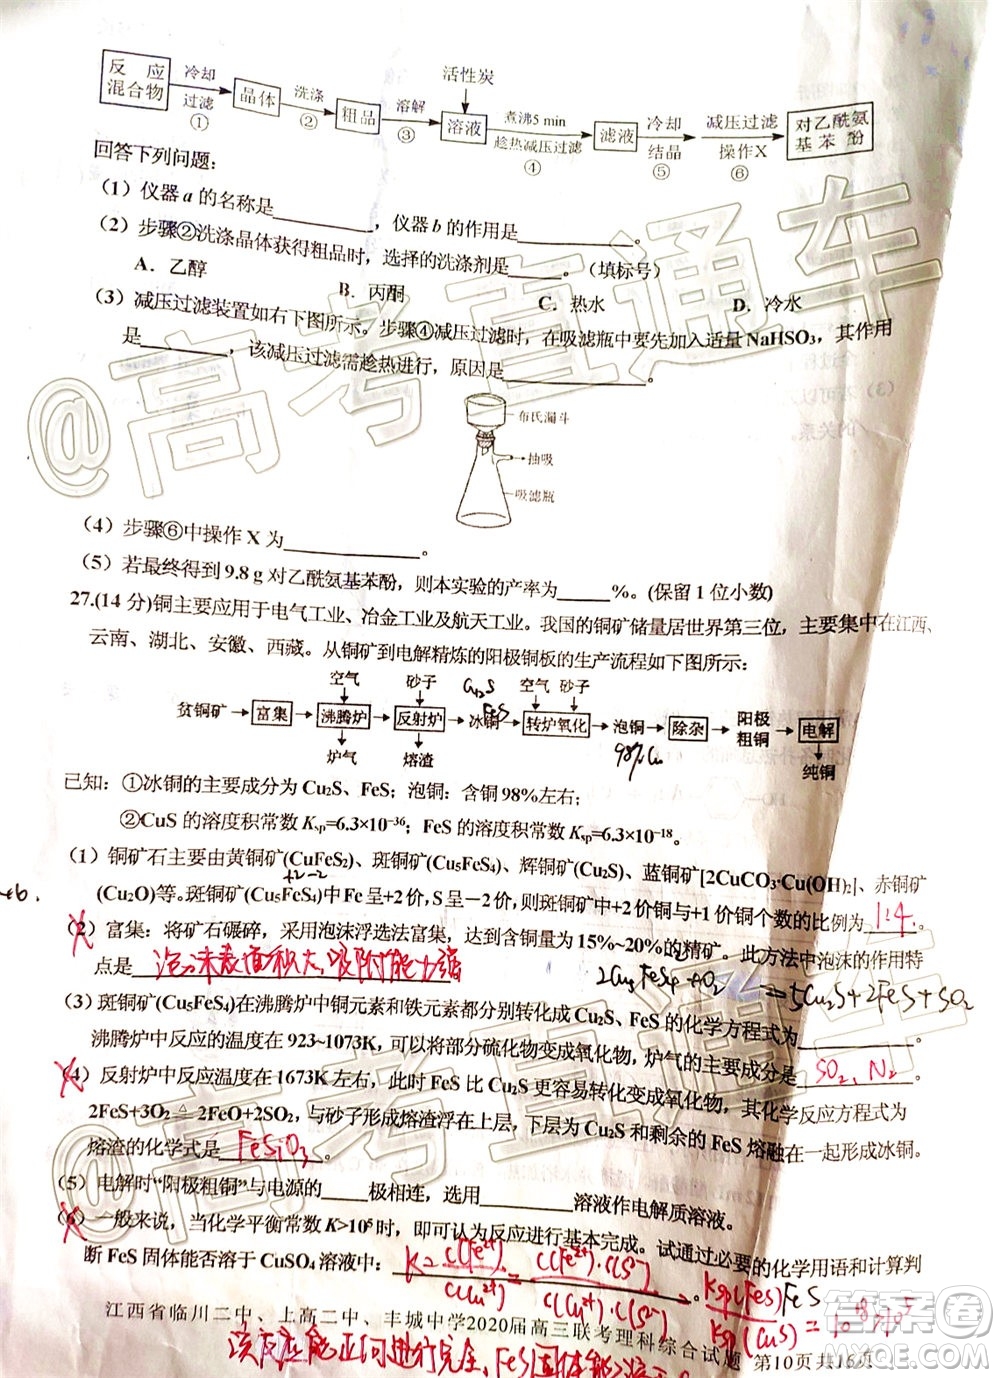 反应混合物 冷却 过滤 ① 晶体 洗涤 ② 粗品 溶解 ③ 活性炭 溶液 煮沸5 min 趁热减压过滤 ④ 滤液 冷却 结晶 ⑤ 减压过滤 操作X ⑥ 对乙酰氨基苯酚
回答下列问题：
（1）仪器 a 的名称是________，仪器 b 的作用是________。
（2）步骤②洗涤晶体获得粗品时，选择的洗涤剂是____。（填标号）
A．乙醇 B．丙酮 C．热水 D．冷水
（3）减压过滤装置如右下图所示。步骤④减压过滤时，在吸滤瓶中要先加入适量 NaHSO₃，其作用
是________，该减压过滤需趁热进行，原因是________。
布氏漏斗
抽吸
吸滤瓶
（4）步骤⑥中操作 X 为________。
（5）若最终得到 9.8 g 对乙酰氨基苯酚，则本实验的产率为____%。(保留 1 位小数)
27.(14 分)铜主要应用于电气工业、冶金工业及航天工业。我国的铜矿储量居世界第三位，主要集中在江西、
云南、湖北、安徽、西藏。从铜矿到电解精炼的阳极铜板的生产流程如下图所示：
空气 砂子 Cu₂S FeS 空气 砂子
贫铜矿 富集 沸腾炉 反射炉 冰铜 转炉氧化 泡铜 除杂 阳极粗铜 电解
炉气 熔渣 98%Cu 纯铜
已知：①冰铜的主要成分为 Cu₂S、FeS；泡铜：含铜 98%左右；
②CuS 的溶度积常数 Ksp=6.3×10⁻³⁶；FeS 的溶度积常数 Ksp=6.3×10⁻¹⁸。
（1）铜矿石主要由黄铜矿(CuFeS₂)、斑铜矿(Cu₅FeS₄)、辉铜矿(Cu₂S)、蓝铜矿[2CuCO₃·Cu(OH)₂]、赤铜矿
+2 -2
(Cu₂O)等。斑铜矿(Cu₅FeS₄)中 Fe 呈+2 价，S 呈－2 价，则斑铜矿中+2 价铜与+1 价铜个数的比例为 1:4。
（2）富集：将矿石碾碎，采用泡沫浮选法富集，达到含铜量为 15%~20%的精矿。此方法中泡沫的作用特
点是 泡沫表面积大，吸附能力强
2Cu₅FeS₄+O₂ = 5Cu₂S+2FeS+SO₂
（3）斑铜矿(Cu₅FeS₄)在沸腾炉中铜元素和铁元素都分别转化成 Cu₂S、FeS 的化学方程式为________。
沸腾炉中反应的温度在 923~1073K，可以将部分硫化物变成氧化物，炉气的主要成分是 SO₂、N₂。
（4）反射炉中反应温度在 1673K 左右，此时 FeS 比 Cu₂S 更容易转化变成氧化物，其化学反应方程式为
2FeS+3O₂≜2FeO+2SO₂，与砂子形成熔渣浮在上层，下层为 Cu₂S 和剩余的 FeS 熔融在一起形成冰铜。
熔渣的化学式是 FeSiO₃。
（5）电解时“阳极粗铜”与电源的____极相连，选用________溶液作电解质溶液。
（6）一般来说，当化学平衡常数 K>10⁵时，即可认为反应进行基本完成。试通过必要的化学用语和计算判
断 FeS 固体能否溶于 CuSO₄ 溶液中： K=c(Fe²⁺)/c(Cu²⁺)=c(Fe²⁺)·c(S²⁻)/c(Cu²⁺)·c(S²⁻)=Ksp(FeS)/Ksp(CuS)=10¹⁸>10⁵
江西省临川二中、上高二中、丰城中学2020届高三联考理科综合试题 第10页 共16页
该反应能正向进行完全，FeS固体能溶于
@高考直通车
答案圈
MXQE.COM